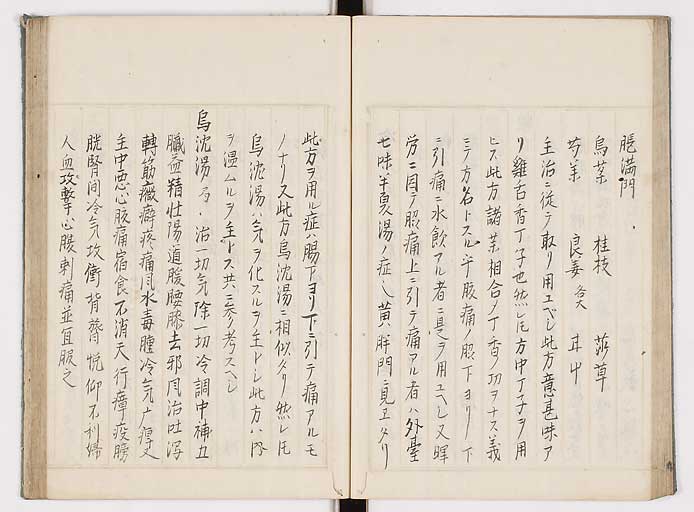 脹満門
烏薬 桂枝 莎草
芍薬 良姜 各大 甘中
主治ニ従テ取リ用ユベシ此方意甚味ア
リ雞舌香丁子也然レ𪜈方中丁子ヲ用
ヒス此方諸薬相合ノ丁香ノ功ヲナス義
ニテ方名トスル乎腹痛ノ臍下ヨリ下
ニ引痛ニ水飲アル者ニ是ヲ用ユヘシ又暉
労ニ因テ臍痛上ニ引テ痛アル者ハ外臺
七味半夏湯ノ症也黄胖門ニ見エタリ
此方ヲ用ル症ハ腸下ヨリ下ニ引テ痛アルモ
ノナリ又此方烏沈湯ニ相似タリ然レ𪜈
烏沈湯ハ気ヲ化スルヲ主トシ此方ハ内
ヲ温ムルヲ主トス共ニ参考スヘシ
烏沈湯 局・治一切気除一切冷調中補五
臓益精壮陽道腹腰膝去邪風治吐瀉
轉筋癥癖疼痛風水毒腫冷気
主中悪心腹痛宿食不消天行瘴疫膀
胱腎間冷気攻衝背膂俛仰不利婦
人血攻撃心腹刺痛並宜服之